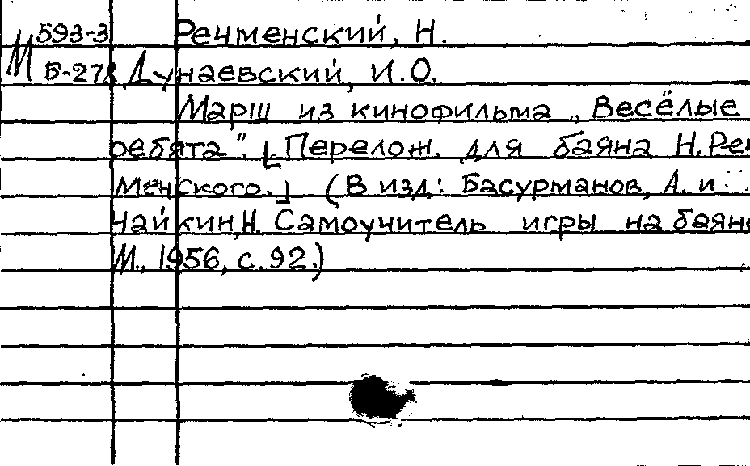 593-3 Речменский, Н.
М Б-278 Дунаевский, И.О.
Марш из кинофильма „Весёлые
ребята". [Перелож. для баяна Н. Реч
менского.] (В изд: Басурманов, А. и
Чайкин, Н. Самоучитель игры на баяне
М., 1956, с. 92.)